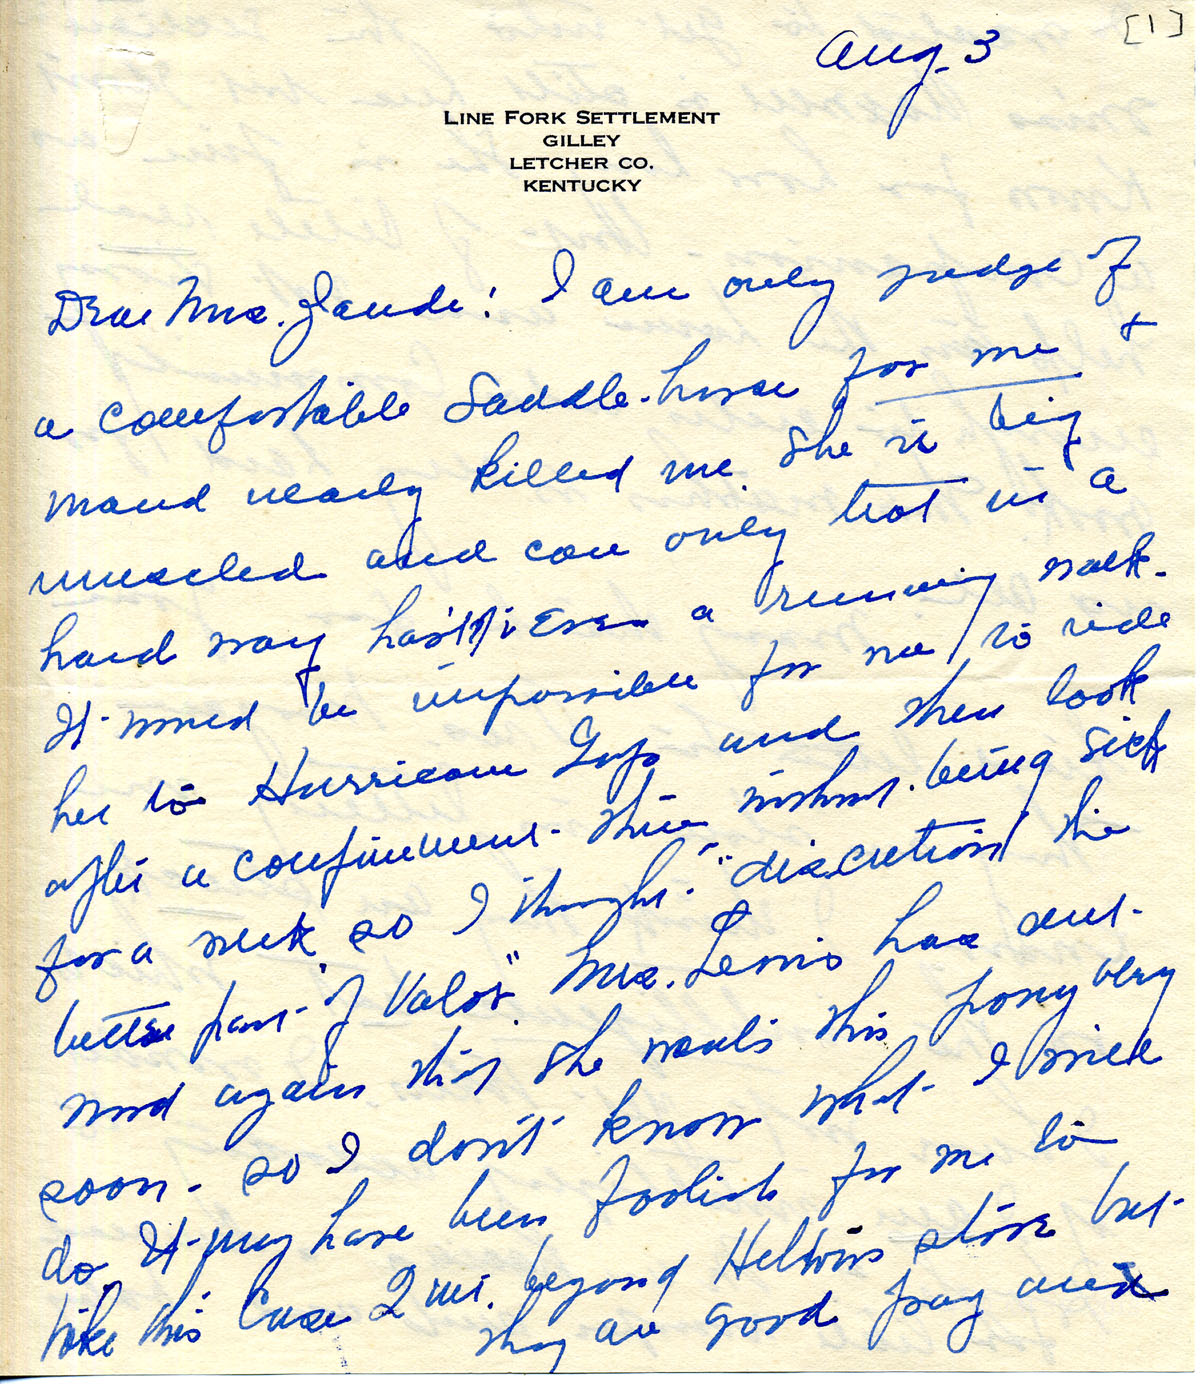 [1]
Aug. 3
LINE FORK SETTLEMENT
GILLEY
LETCHER CO.
KENTUCKY
Dear Mrs. Zande: I am only judge of
a comfortable saddle-horse for me &
Maud nearly killed me. She is big
muscled and can only trot in a
hard way hasn't even a running walk.
It would be impossible for me to ride
her to Hurricane Gap and then look
after a confinement there without being sick
for a week, so I thought "discretion the
better part of Valor". Mrs. Lewis has sent
word again that she wants this pony very
soon. so I don't know what I will
do. It may have been foolish for me to
take this Case 2 mi. beyond store but
they are good pay and